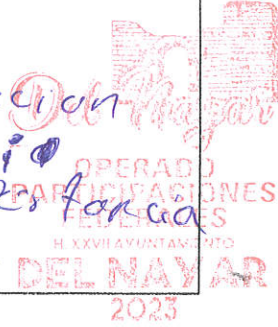 cion
Del Nayar
io
OPERADO
PARTICIPACIONES
Estancia
FEDERALES
H. XXVII AYUNTAMIENTO
DEL NAYAR
2023